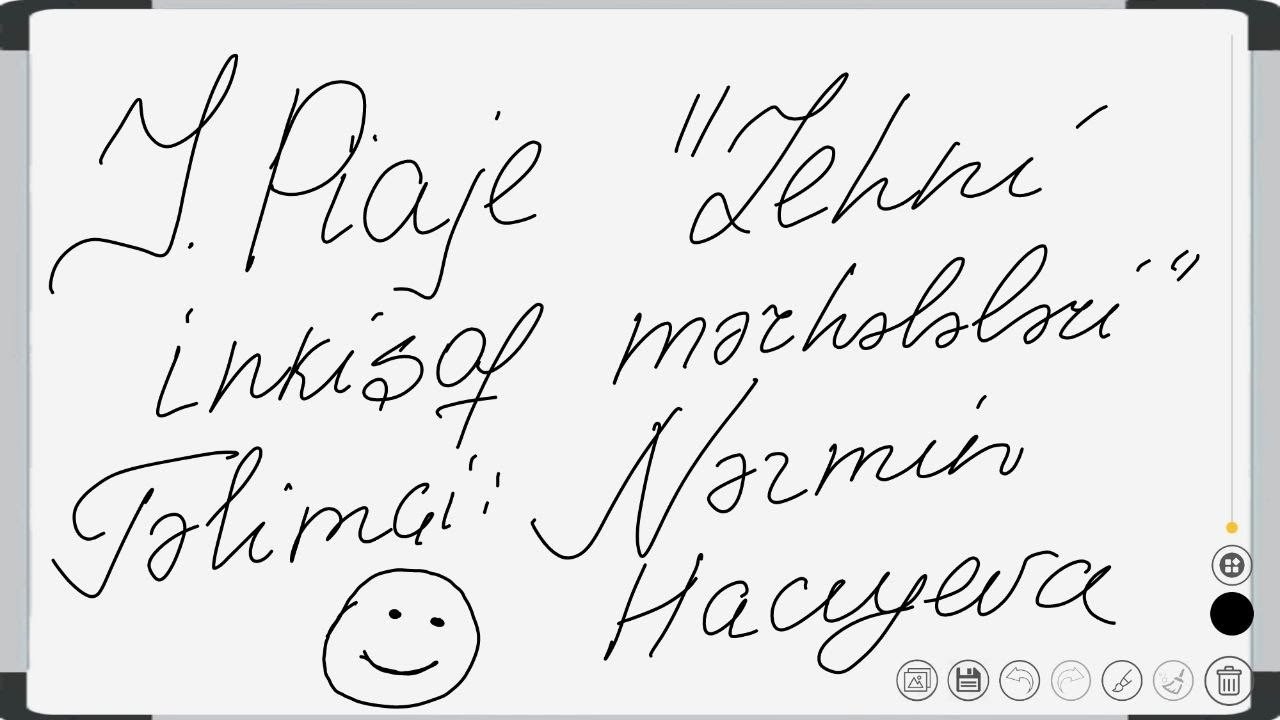 J. Piaje "Zehni
inkişaf mərhələləri"
Təlimçi: Nərmin
Hacıyeva